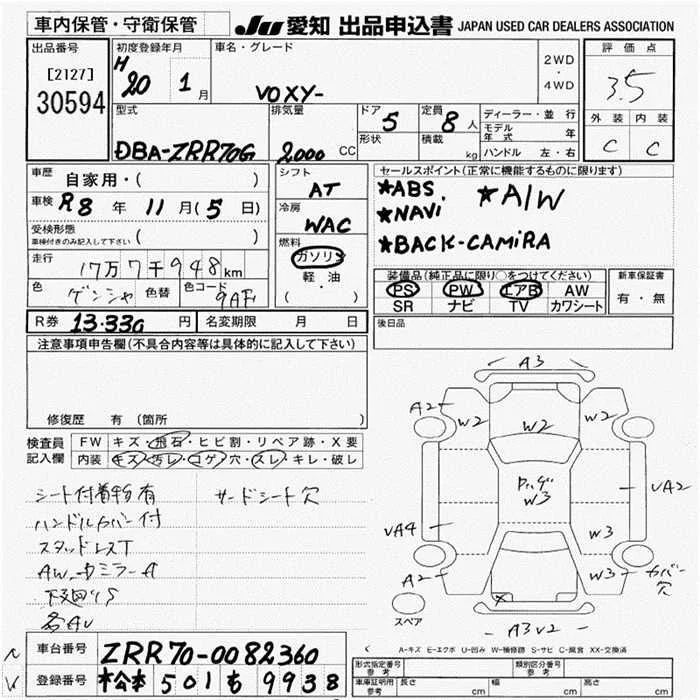 車内保管・守衛保管
JU 愛知 出品申込書 JAPAN USED CAR DEALERS ASSOCIATION
出品番号
[2127]
30594
初度登録年月
H 20 1月
車名・グレード
VOXY-
2WD
・
4WD
評価点
3.5
外装 内装
C C
型式
DBA-ZRR70G
排気量
2000 CC
ドア 5
形状
定員 8 人
積載 kg
ディーラー・並行
モデル年式 年
ハンドル 左・右
車歴 自家用・( )
車検 R8 年 11 月(5 日)
受検形態
車検付きのみ記入して下さい ( )
走行 17万7千948km
色 ゲンシャ 色替 色コード
シフト
AT
冷房
WAC
燃料
ガソリン
軽・油
( ・ )
セールスポイント(正常に機能するものに限ります)
★ABS. ★A/W
★NAVi
★BACK-CAMiRA
装備品(純正品に限り○をつけてください)
PS PW エアB AW
SR ナビ TV カワシート
新車保証書
有・無
R券 13.330 円 名変期限 月 日
後日品
注意事項申告欄(不具合内容等は具体的に記入して下さい)
修復歴 有 (箇所 )
検査員
記入欄
FW キズ・飛石・ヒビ割・リペア跡・X要
内装 キズ・汚レ・コゲ・穴・スレ・キレ・破レ
シート付着物有 サードシート穴
ハンドルカバー付
スタッドレスT
A3
A2 W2 W2 W2
W3
VA2
VA4 W3
A2 W3 カバー穴
スペア
A3 V2
A-キズ E-エクボ U-凹み W-補修跡 S-サビ C-腐食 XX-交換済
車台番号 ZRR70-0082360
登録番号 松本 501 も 9938
形式指定番号
参考
類別区分番号
参考
車庫証明用
参考
長さ cm 幅 cm 高さ cm